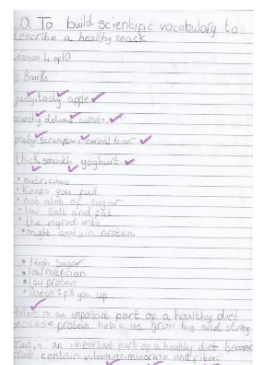 .O. To build scientific vocabulary to
describe a healthy snack
Lesson 4
juicy, tasty apple
crunchy, delicious carrots
scrumptious cereal bar
thick smooth yoghurt
• Keeps you full
• not alot of sugar
• low salt and fat
• the
• might contain protein
• High Sugar
• low
• low protein
• Doesn't fill you up
is an important part of a healthy diet
protein helps us grow big and strong
is an important part of a healthy diet
contain vitamins minerals and fiber